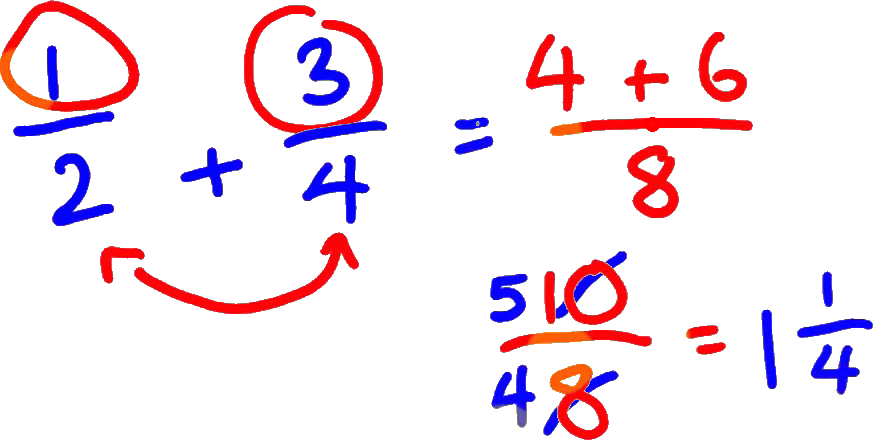 1/2 + 3/4 = 4 + 6/8
5 10/4 8 = 1 1/4